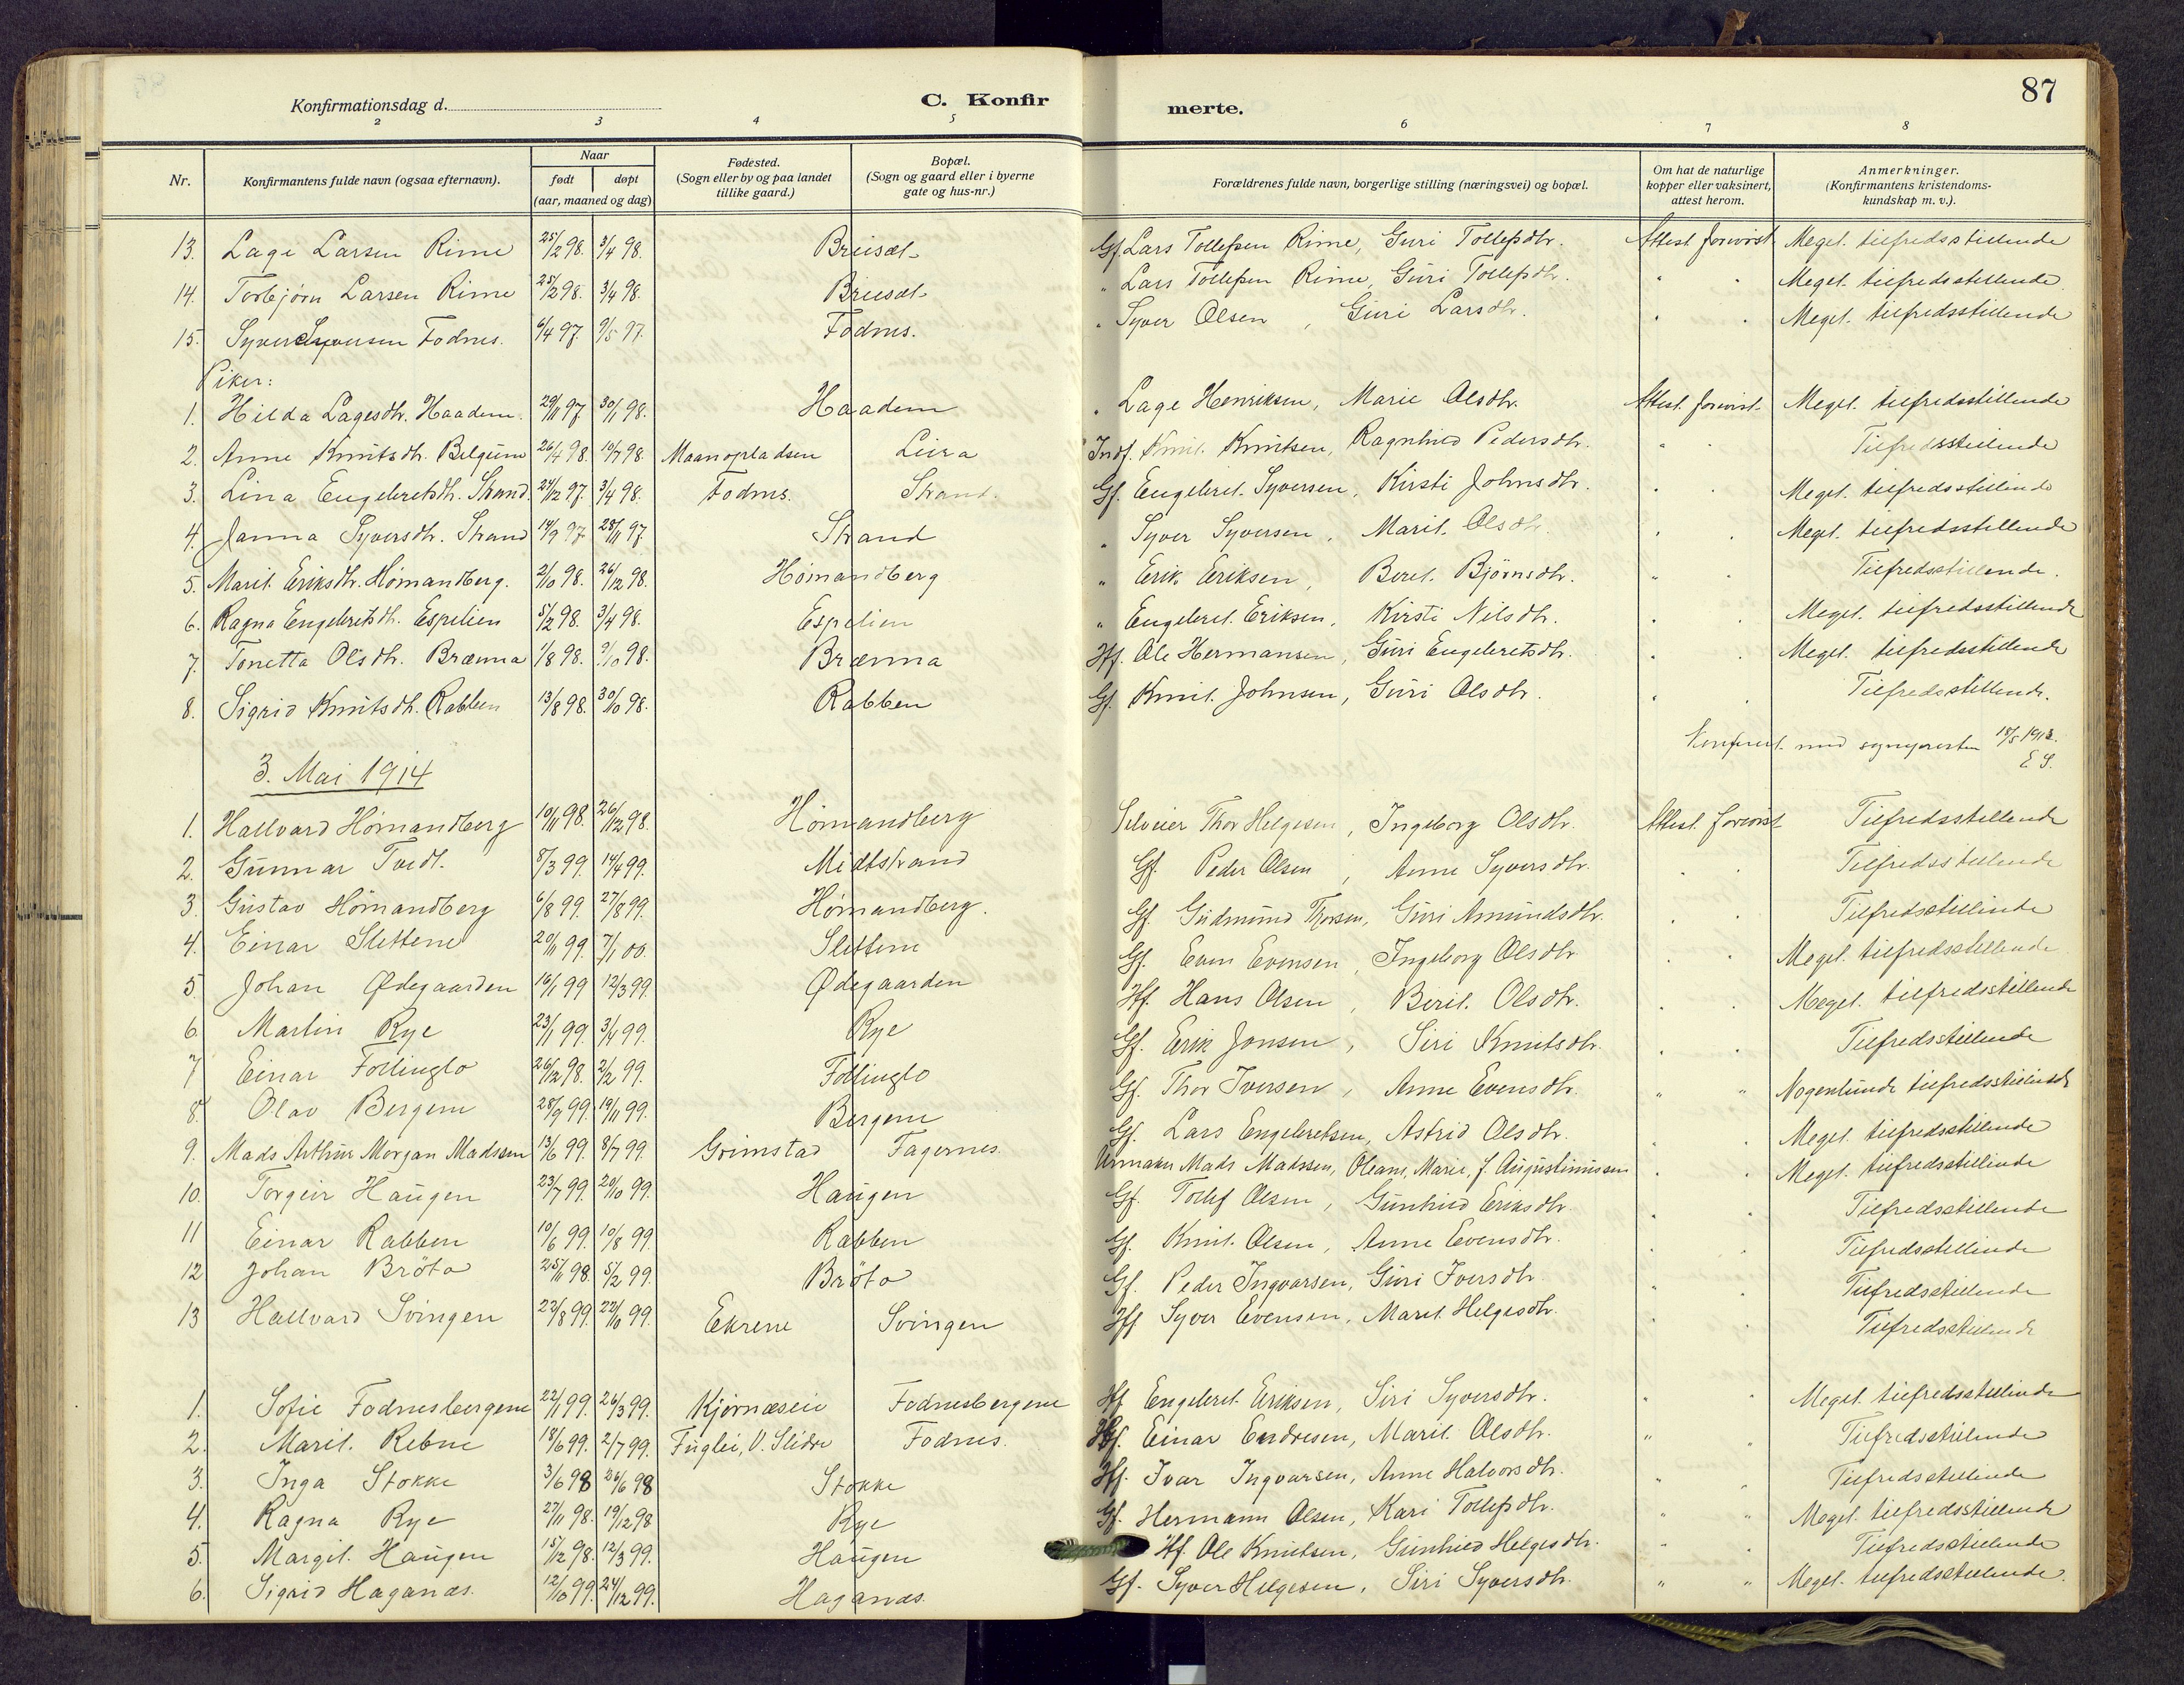 87
Konfirmationsdag d. C. Konfirmerte.
2 3 4 5 6 7 8
Nr. Konfirmantens fulde navn (ogsaa efternavn). Naar født døpt (aar, maaned og dag) Fødested. (Sogn eller by og paa landet tillike gaard.) Bopæl. (Sogn og gaard eller i byerne gate og hus-nr.) Forældrenes fulde navn, borgerlige stilling (næringsvei) og bopæl. Om hat de naturlige kopper eller vaksinert, attest herom. Anmerkninger. (Konfirmantens kristendoms-kundskap m. v.).
13. Lage Larsen Rime 25/2 98. 3/4 98. Breisæt Gf. Lars Tollefsen Rime, Guri Tollefsdtr. Attest forevist Meget tilfredsstillende
14. Torbjørn Larsen Rime 25/2 98. 3/4 98. Breisæt " Lars Tollefsen Rime, Guri Tollefsdtr. " " Meget tilfredsstillende
15. Syver Syversen Fodnes. 6/4 97. 9/5 97. Fodnes. " Syver Olsen, Guri Larsdtr. " " Meget tilfredsstillende
Piker:
1. Hilda Lagesdtr. Haadem. 29/11 97 30/1 98. Haadem " Lage Henriksen, Marie Olsdtr. Attest forevist Meget tilfredsstillende
2. Anne Knutsdtr. Belgum 26/4 98. 10/7 98. Maanopladsen Leira Indf. Knut Knutsen, Ragnhild Pedersdtr. " Tilfredsstillende
3. Lina Engebretsdtr. Strand 24/12 97. 3/4 98. Fodnes. Strand. Gf. Engebret Syversen, Kirsti Johnsdtr. " " Meget tilfredsstillende
4. Janna Syversdtr. Strand 14/9 97 28/11 97. Strand " Syver Syversen, Marit Olsdtr. " " Meget tilfredsstillende
5. Marit Eriksdtr. Hömandberg. 2/10 98. 26/12 98. Hömandberg " Erik Eriksen, Beret Björnsdtr. " " Tilfredsstillende.
6. Ragna Engebretsdtr. Espelien 5/2 98. 3/4 98. Espelien " Engebret Eriksen, Kirsti Nilsdtr. " " Meget tilfredsstillende
7. Tonetta Olsdtr. Brænna 1/8 98. 9/10 98. Brænna Hf. Ole Hermansen, Guri Engebretsdtr. " " Meget tilfredsstillende
8. Sigrid Knutsdtr. Rabben 13/8 98. 30/10 98. Rabben Gf. Knut Johnsen, Guri Olsdtr. " " Tilfredsstillende.
Konferert med sognepresten 15/5 1913. E S.
3. Mai 1914
1. Hallvard Hömandberg 10/11 98. 26/12 98. Hömandberg Selveier Thor Helgesen, Ingeborg Olsdtr. Attest forevist Tilfredsstillende
2. Gunnar Tvedt. 8/3 99. 14/4 99. Midtstrand Gf. Peder Olsen, Anne Syversdtr. " " Tilfredsstillende
3. Gustav Hömandberg 6/8 99. 27/8 99. Hömandberg. Gf. Gudmund Thorsen, Guri Amundsdtr. " " Tilfredsstillende
4. Einar Slettene 20/11 99. 7/1 00. Slettene Gf. Even Evensen, Ingeborg Olsdtr " " Meget tilfredsstillende
5. Johan Ødegaarden 16/1 99 12/3 99. Ødegaarden Hf. Hans Olsen, Berit Olsdtr. " " Meget tilfredsstillende
6. Martin Rye 23/1 99. 3/4 99. Rye Gf. Erik Jonsen, Siri Knutsdtr. " " Tilfredsstillende
7 Einar Follinglo 26/12 98. 2/2 99. Follinglo Gf. Thor Iversen, Anne Evensdtr. " " Nogenlunde tilfredsstillende
8. Olav Bergene 28/9 99. 19/11 99. Bergene Gf. Lars Engebretsen, Astrid Olsdtr. " " Meget tilfredsstillende
9. Mads Arthur Morgan Madssen 13/6 99. 8/7 99. Grimstad Fagernes. Urmaker Mads Madssen, Oleane, Marie, f. Augustinussen " " Meget tilfredsstillende
10. Torgeir Haugen 23/7 99. 20/10 99. Haugen Gf. Tollef Olsen, Gunhild Eriksdtr. " " Tilfredsstillende
11 Einar Rabben 10/6 99. 10/8 99. Rabben Gf. Knut Olsen, Anne Evensdtr. " " Tilfredsstillende
12 Johan Bröto 25/11 98. 5/2 99. Bröto Gf. Peder Ingvarsen, Guri Iversdtr. " " Tilfredsstillende
13 Hallvard Svingen 22/8 99. 22/10 99. Ekrene Svingen Hf Syver Evensen, Marit Helgesdtr. " " Tilfredsstillende
1. Sofie Fodnesbergene 22/1 99. 26/3 99. Kjørnæseie Fodnesbergene Hf Engebret Eriksen, Siri Syversdtr. " " Meget tilfredsstillende
2. Marit Rebne 18/6 99. 2/7 99. Fuglei, V. Slidre Fodnes. Hf. Einar Endresen, Marit Olsdtr. " " Tilfredsstillende
3. Inga Stokke 3/6 98 26/6 98 Stokke Hf. Ivar Ingvarsen, Anne Halvorsdtr. " " Tilfredsstillende
4. Ragna Rye 27/11 98. 19/12 98 Rye Gf. Hermann Olsen, Kari Tollefsdtr. " " Meget tilfredsstillende
5. Margit Haugen 15/12 98. 12/3 99. Haugen Hf. Ole Knutsen, Gunhild Helgesdtr. " " Tilfredsstillende
6. Sigrid Haganæs. 12/10 99. 24/12 99. Haganæs. Gf. Syver Helgesen, Siri Syversdtr. " " Meget tilfredsstillende.